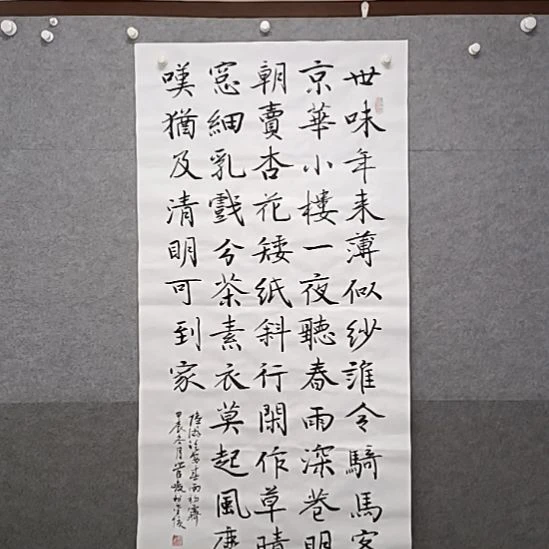 世味年来薄似紗誰令騎馬客
京華小樓一夜聽春雨深巷明
朝賣杏花矮紙斜行閑作草晴
窓細乳戲分茶素衣莫起風塵
嘆猶及清明可到家
陸游臨安春雨初霽
甲辰冬月